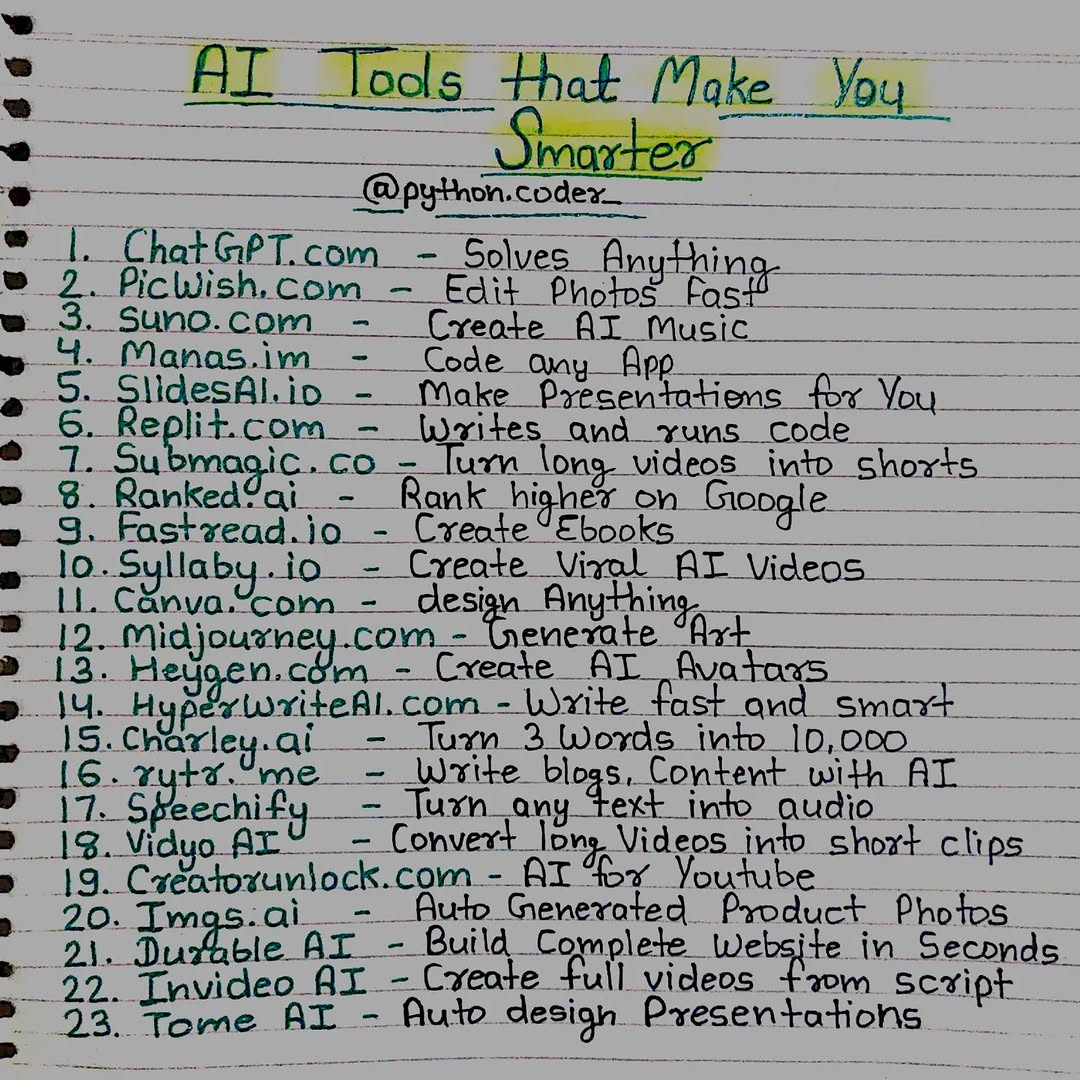 AI Tools that Make You
Smarter
@python.coder_
1. ChatGPT.com - Solves Anything
2. PicWish.com - Edit Photos Fast
3. Suno.com - Create AI Music
4. Manas.im - Code any App
5. SlidesAI.io - Make Presentations for You
6. Replit.com - Writes and runs code
7. Submagic.co - Turn long videos into shorts
8. Ranked.ai - Rank higher on Google
9. Fastread.io - Create Ebooks
10. Syllaby.io - Create Viral AI Videos
11. Canva.com - design Anything
12. Midjourney.com - Generate Art
13. Heygen.com - Create AI Avatars
14. HyperWriteAI.com - Write fast and smart
15. Charley.ai - Turn 3 Words into 10,000
16. rytr.me - Write blogs, Content with AI
17. Speechify - Turn any text into audio
18. Vidyo AI - Convert long Videos into short clips
19. Creatorunlock.com - AI for Youtube
20. Imgs.ai - Auto Generated Product Photos
21. Durable AI - Build Complete Website in Seconds
22. Invideo AI - Create full videos from script
23. Tome AI - Auto design Presentations